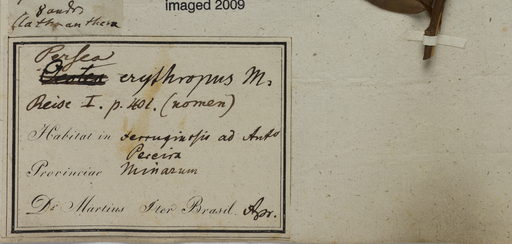 imaged 2009
8 andr.
Clathranthera
Persea
erythropus M.
Reise I. p. 401. (nomen)
Habitat in ferruginosis ad Anto
Pereira
Provinciae Minarum
Dr Martius Iter Brasil. Apr.